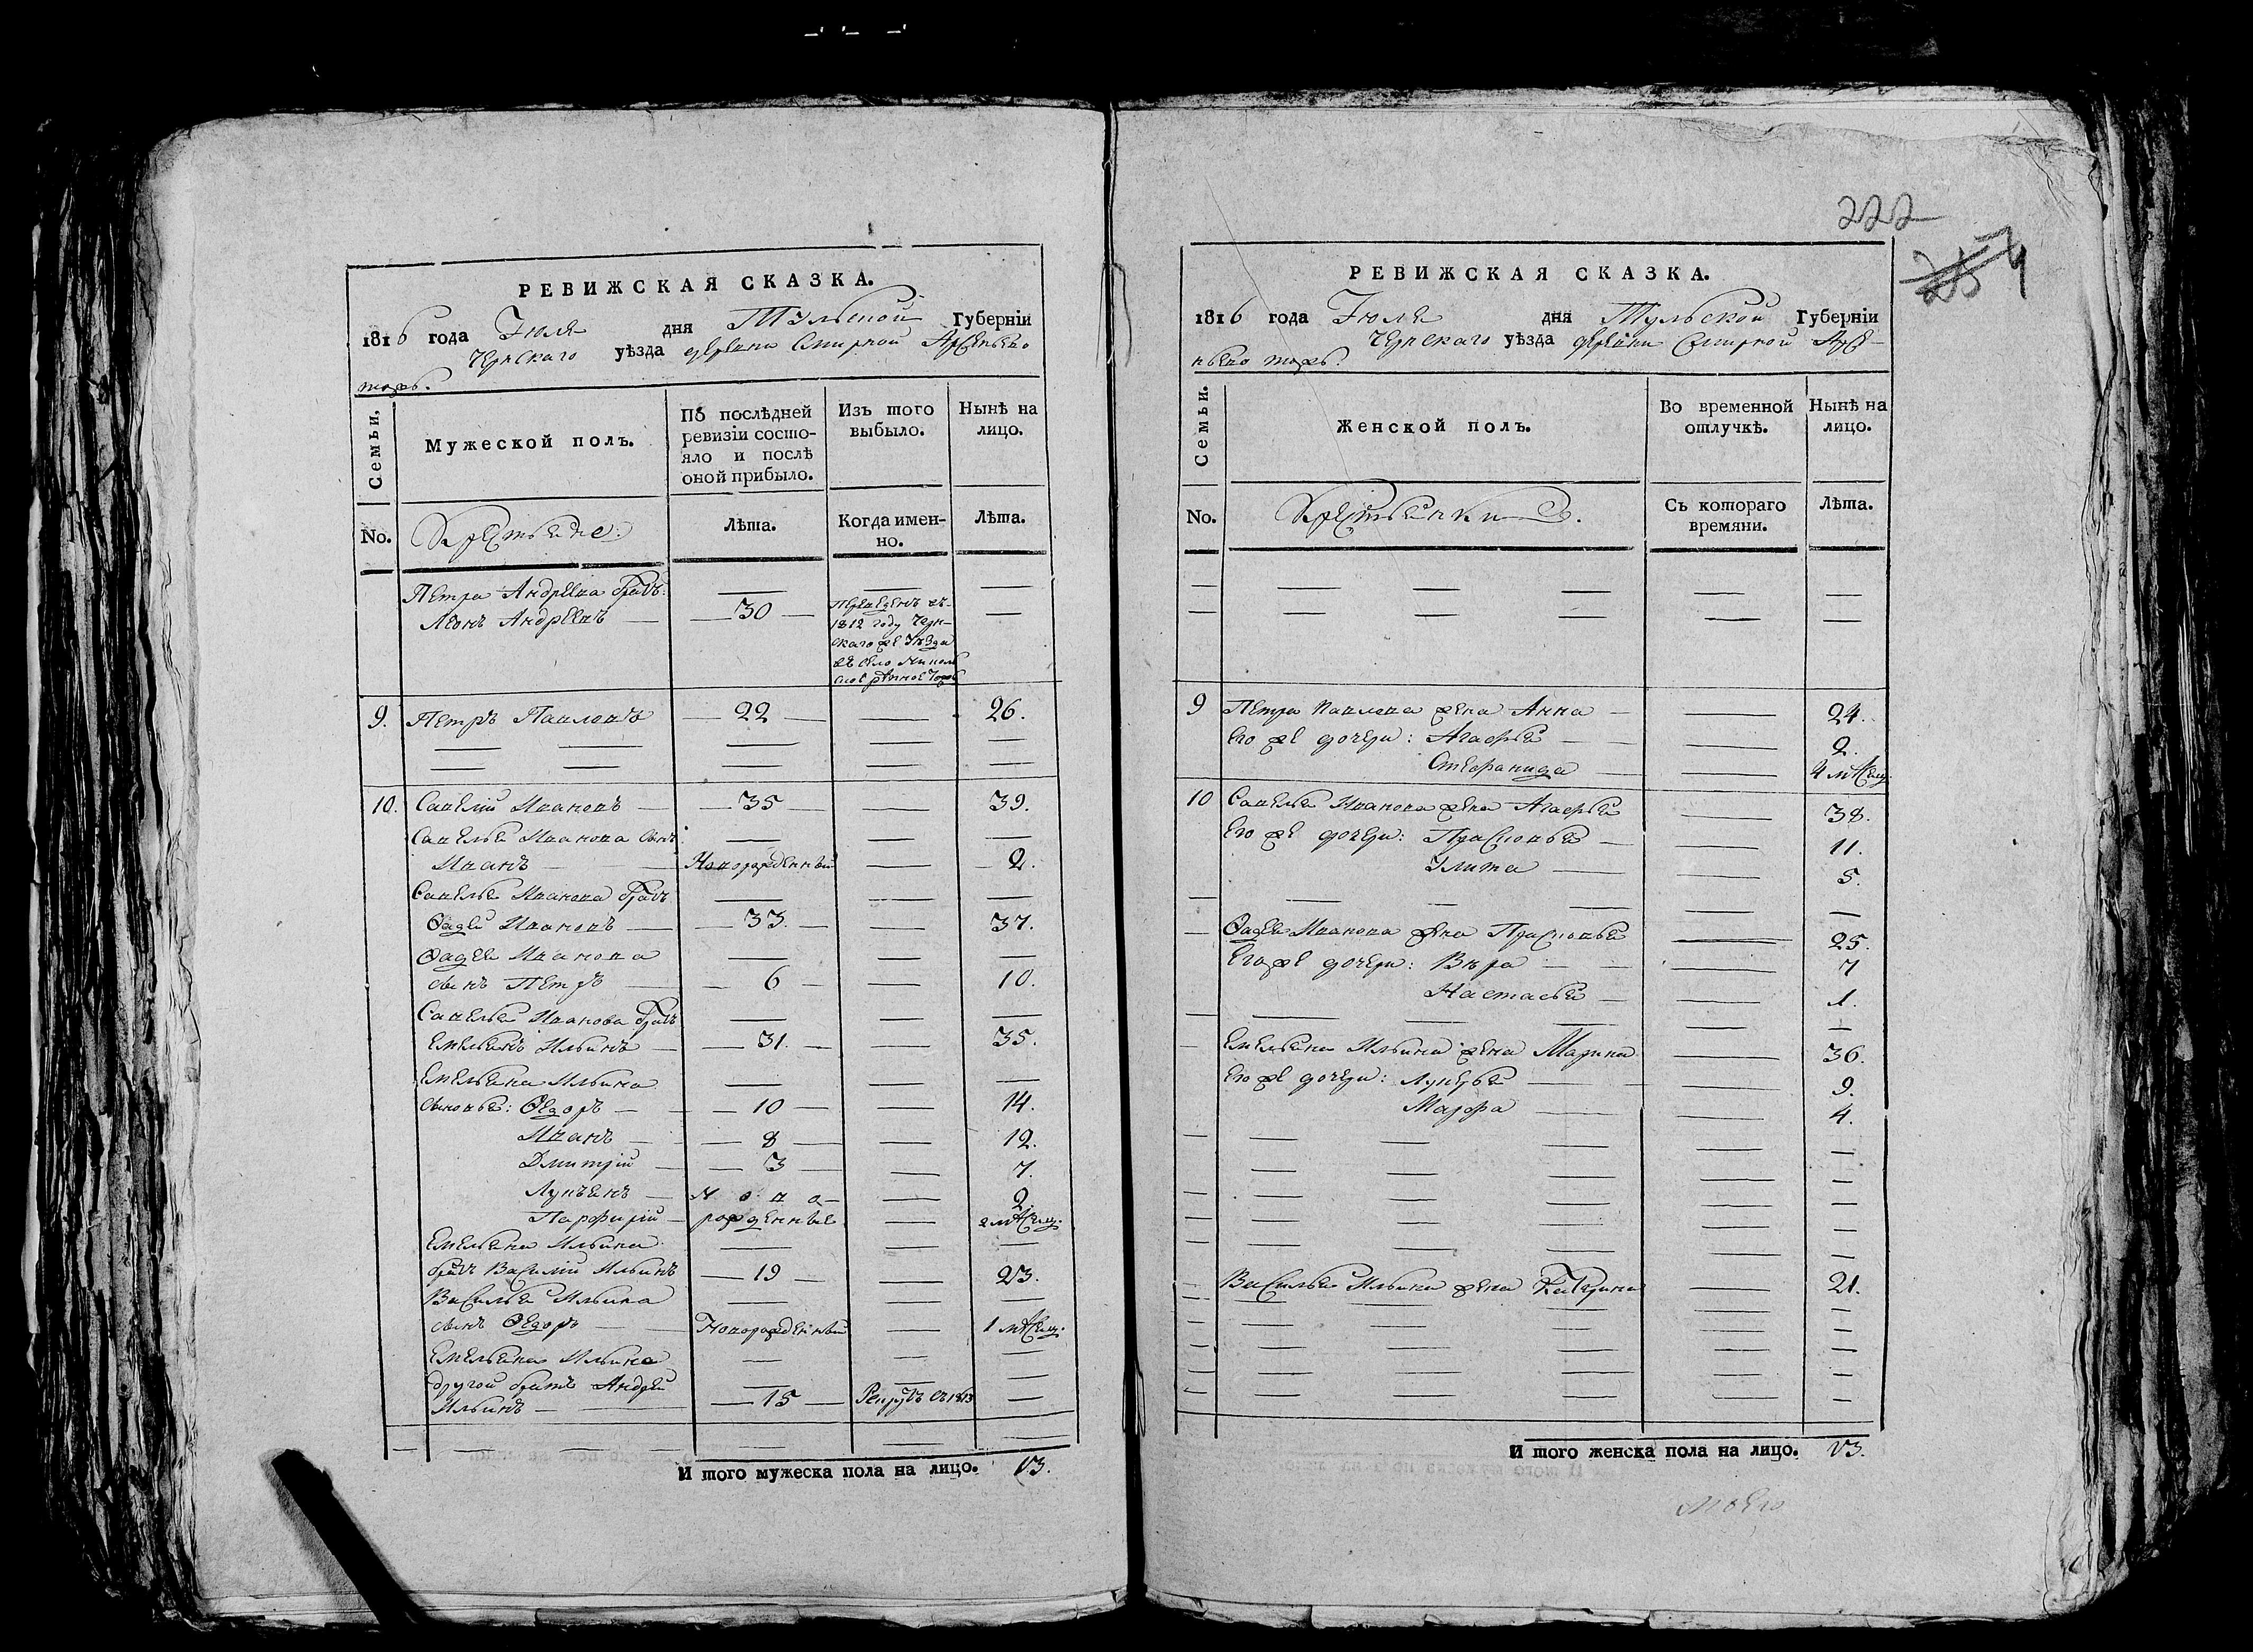 РЕВИЖСКАЯ СКАЗКА.
1816 года Іюля дня Тульской Губерніи
Чернскаго уѣзда деревни Смирной Арсеньево
тожъ.
Семьи.
Мужеской полъ.
По послѣдней ревизіи состояло и послѣ оной прибыло.
Изъ того выбыло.
Нынѣ на лицо.
No.
Крестьяне:
Лѣта.
Когда именно.
Лѣта.
Петра Андреева братъ:
Леонъ Андреевъ — 30 — Переведенъ въ
1812 году Черн-
скаго же уѣзда
въ село
9. Петръ Павловъ — 22 — 26.
10. Савелій Ивановъ — 35 — 39.
Савелья Иванова сынъ
Иванъ — Новорожденный — 2.
Савелья Иванова братъ
Ѳадей Ивановъ — 33. — 37.
Ѳадея Иванова
сынъ Петръ — 6 — 10.
Савелья Иванова братъ
Емельянъ Ильинъ — 31. — 35.
Емельяна Ильина
сыновья: Ѳедоръ — 10 — 14.
Иванъ — 8 — 12.
Дмитрій — 3 — 7.
Лукьянъ — Ново- — 2.
Парфирій — рожденные — 2 мѣсяц.
Емельяна Ильина
братъ Василій Ильинъ — 19 — 23.
Василья Ильина
сынъ Ѳедоръ — Новорожденный — 1 мѣсяц.
Емельяна Ильина
другой братъ Андрей
Ильинъ — 15 — Рекрутъ въ 1813
И того мужеска пола на лицо. 13.
222
РЕВИЖСКАЯ СКАЗКА.
1816 года Іюля дня Тульской Губерніи
Чернскаго уѣзда деревни Смирной Арсе-
ньево тожъ.
Семьи.
Женской полъ.
Во временной отлучкѣ.
Нынѣ на лицо.
No.
Крестьянки
Съ котораго времяни.
Лѣта.
9 Петра Павлова жена Анна — 24.
Его же дочери: Агафья — 2.
Степанида — 4 мѣсяц.
10 Савелья Иванова жена Агафья — 38.
Его же дочери: Прасковья — 11.
Улита — 5.
Ѳадея Иванова жена Прасковья — 25.
Его же дочери: Вѣра — 7
Настасья — 1.
Емельяна Ильина жена Марина — 36.
Его же дочери: Лукерья — 9.
Марфа — 4.
Василья Ильина жена Катерина — 21.
И того женска пола на лицо. 13.